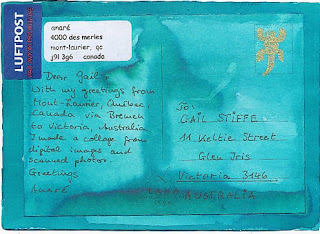 LUFTPOST
anaré
4000 des merles
mont-laurier, qc
j9l 3g6 canada
Dear Gail,
With my greetings from
Mont-Laurier, Québec
Canada via Bremen
to Victoria, Australia
I made a collage from
digital images and
scanned photos.
Greetings
Anaré
To:
GAIL STIFFE
11 Keltie Street
Glen Iris
Victoria 3146
AUSTRALIA